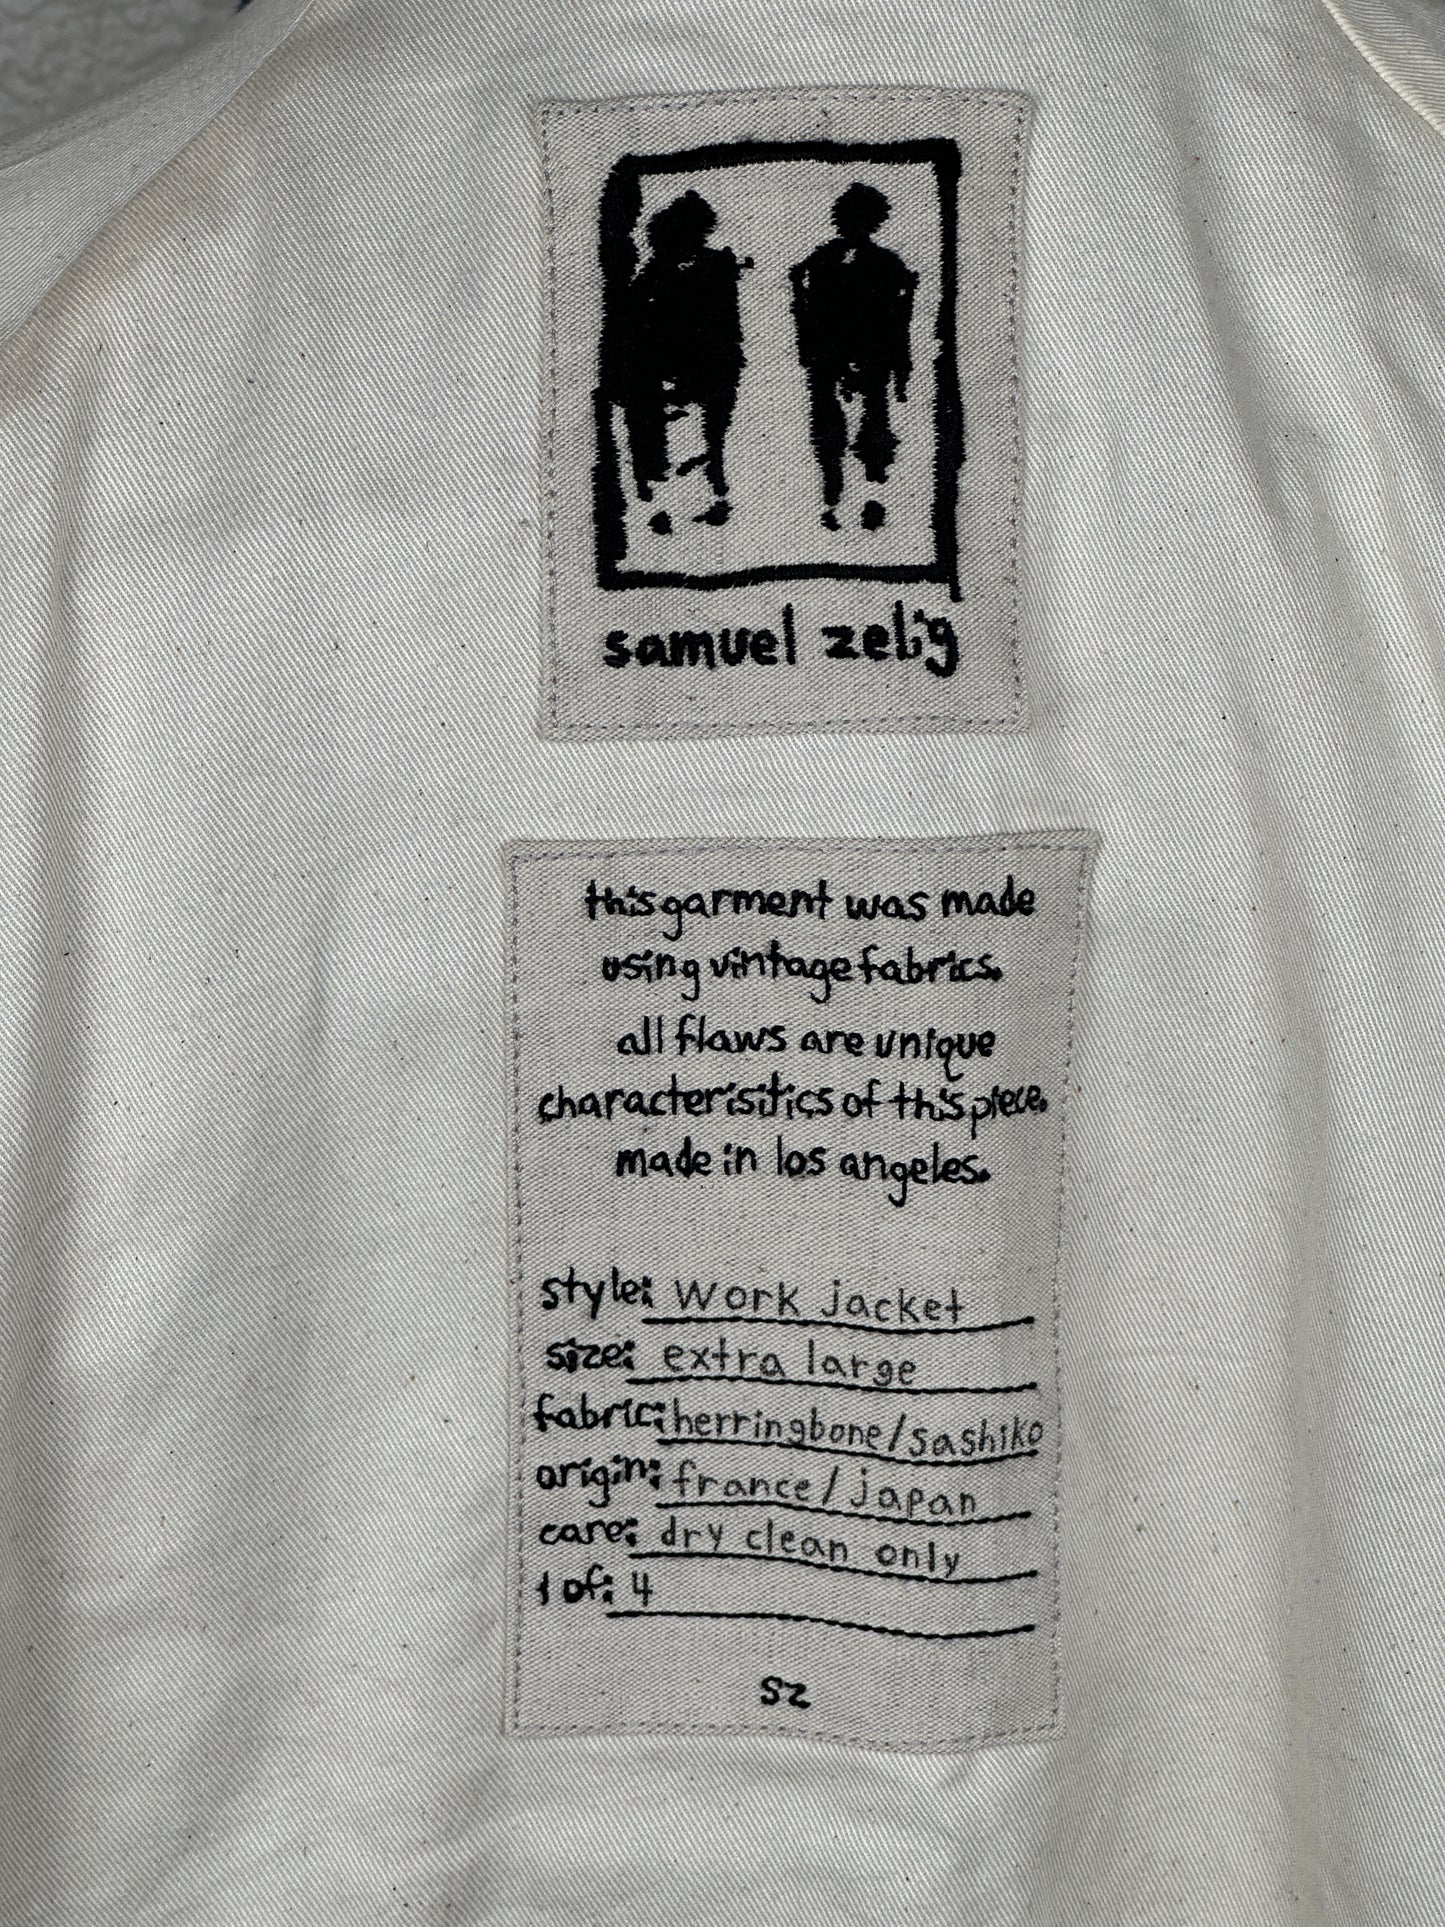 samuel zelig
this garment was made
using vintage fabrics.
all flaws are unique
characterisitics of this piece.
made in los angeles.
style: Work jacket
size: extra large
fabric: herringbone/sashiko
origin: france/japan
care: dry clean only
1 of: 4
sz